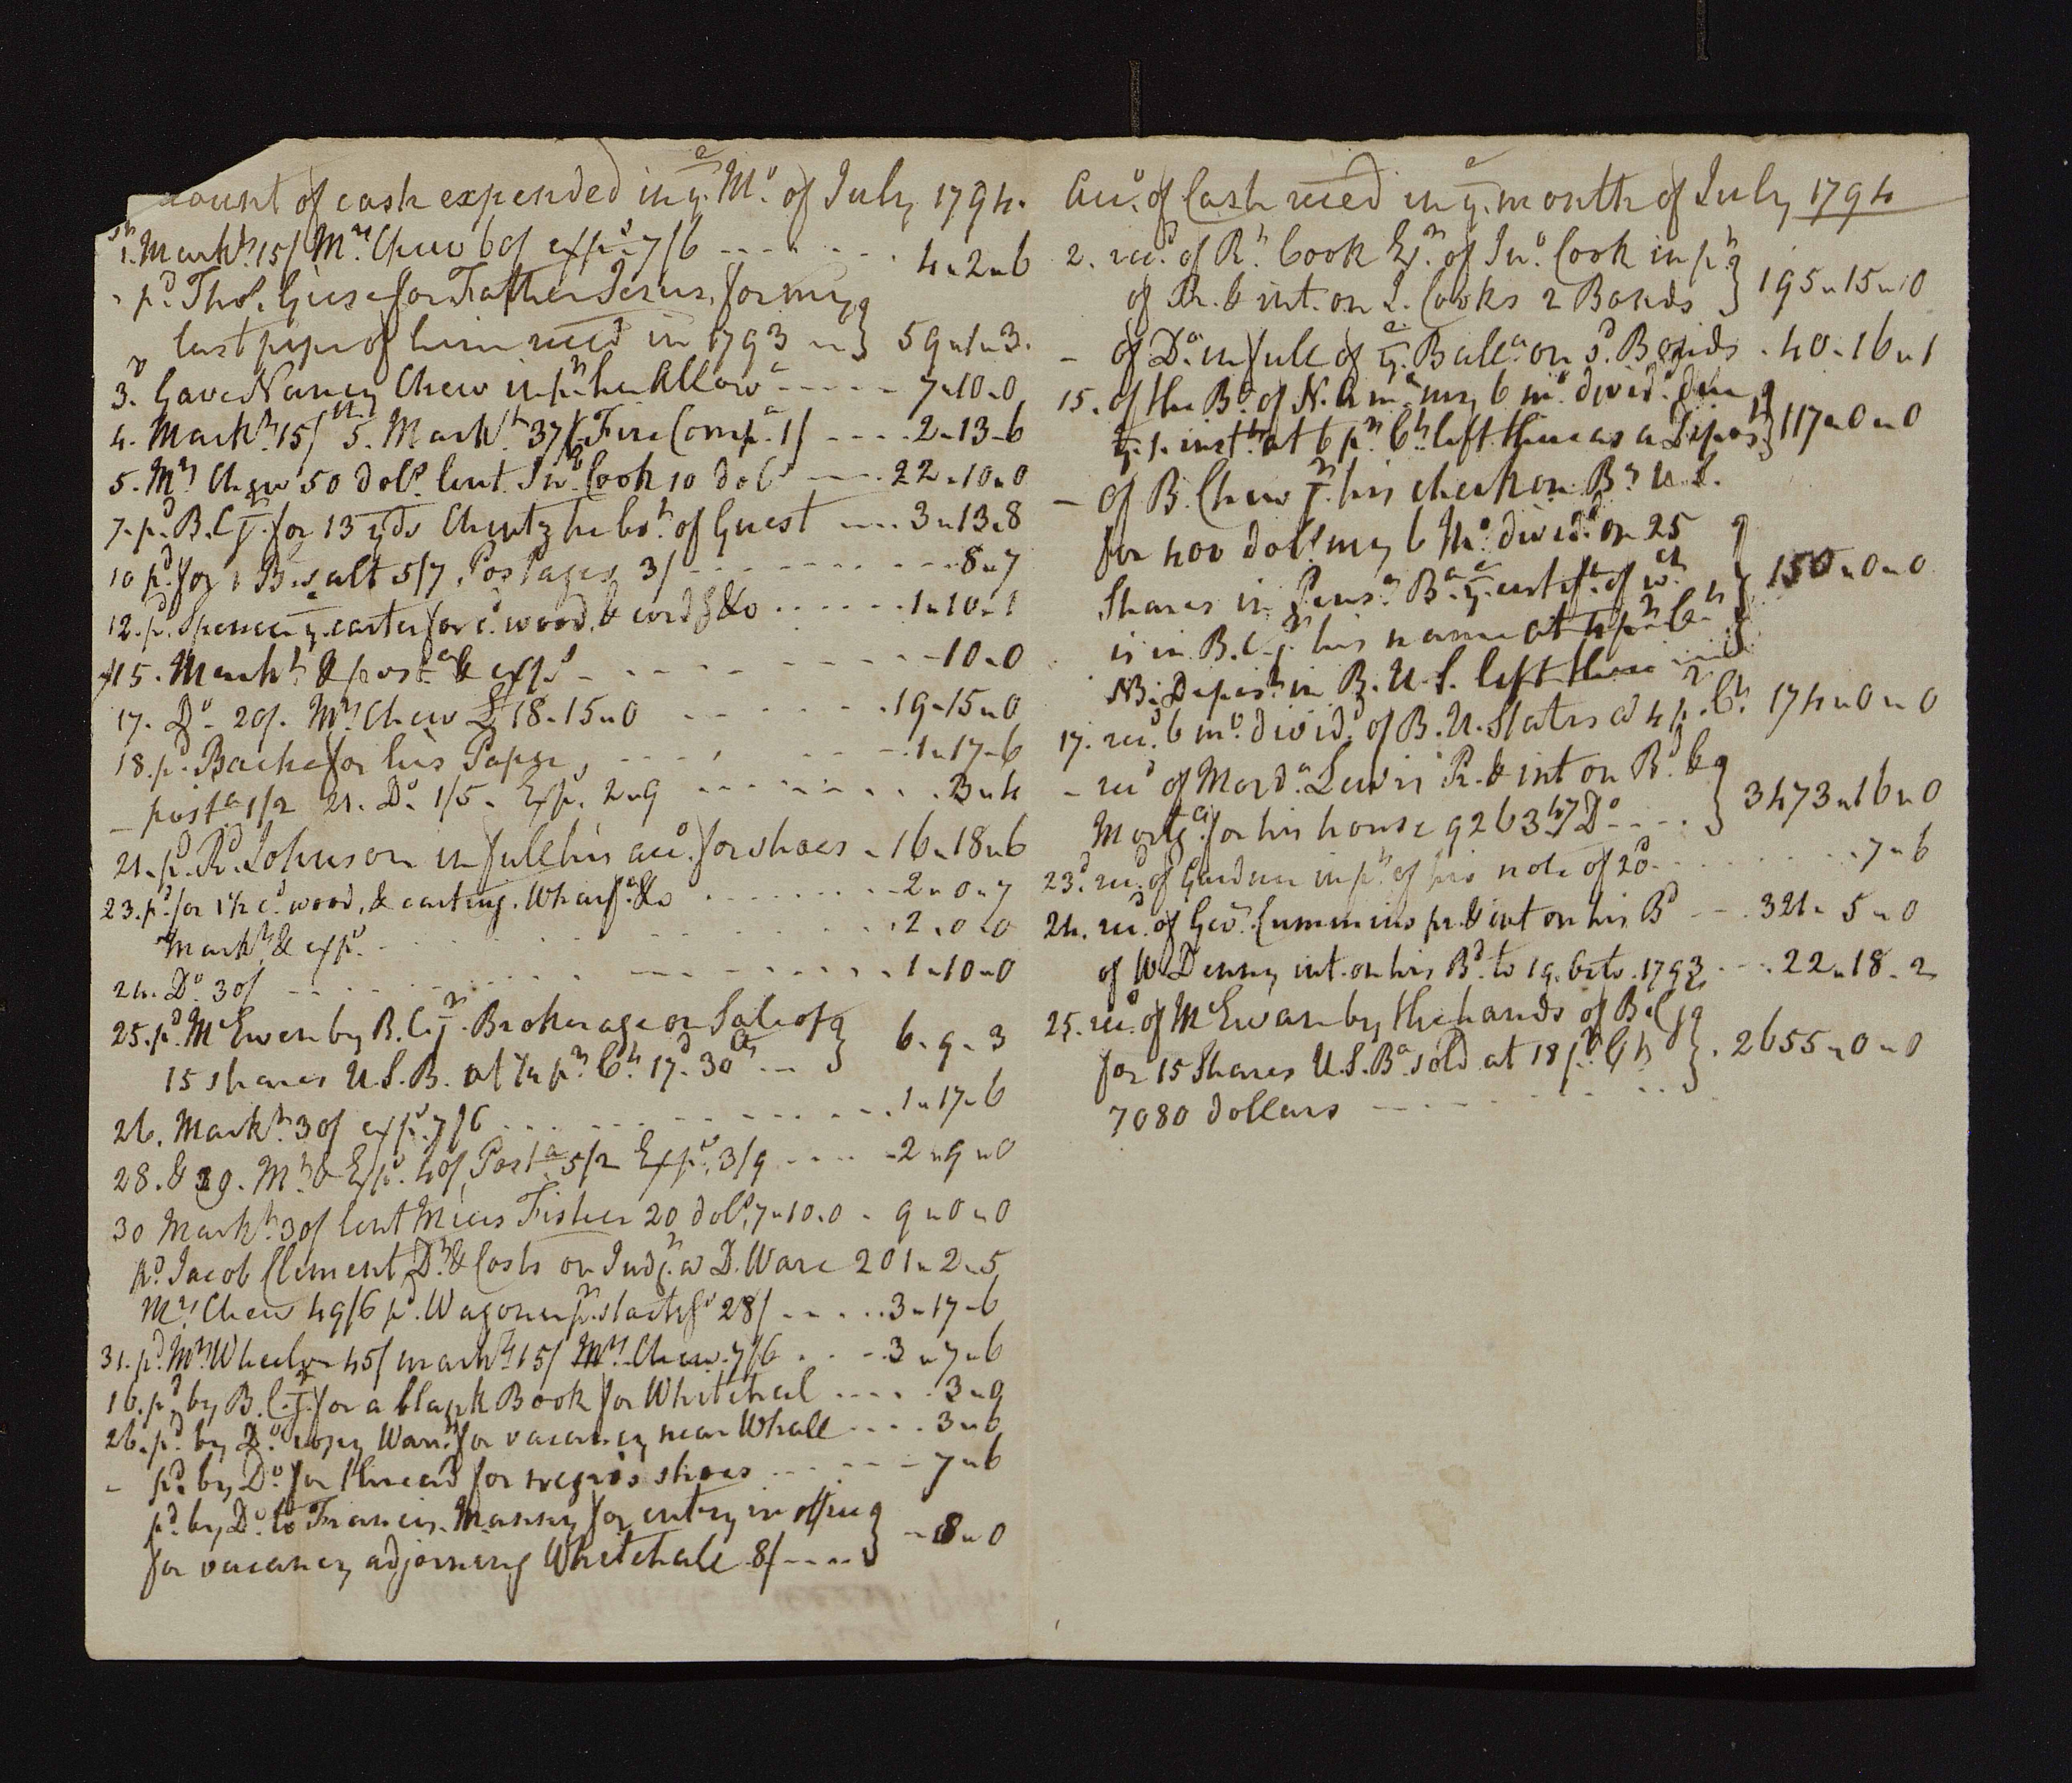 count of cash expended in ye. Mo. of July 1794.
1. Markt. 15/ Mrs. Chew 60/ exps. 7/6 4-2-6
pd. Thos. Giese for Father Jesus, for my
last pipe of him recd in 1793 59-1-3.
3d. Gave Nancy Chew in pt. her Allowa. 7-10-0
4. Markt. 15/ 5. Markt. 37/6 Fire Compa. 1/ 2-13-6
5. Mrs. Chew 50 dols. lent Jno. Cook 10 dols 22-10-0
7. pd. B. C. Jr. for 13 yds Chintz he bot. of Guest 3-13-8
10 pd. for 1 B. salt 5/7, Postages 3/ 8-7
12. pd. Spencer ye. carter for c. wood, & cordg &c 1-10-1
15. Markt. & posta. & exps. 10-0
17. Do. 20/. Mrs. Chew £ 18-15-0 19-15-0
18. pd. Bache for his Paper, 1-17-6
posta. 1/2 21. Do. 1/5. Exps. 2-9 3-4
21. pd. Rd. Johnson in full his acco. for shoes 16-18-6
23. pd. for 1 1/2 cd. wood, & carting. Wharfa. &c 2-0-7
Markt. & exps. 2-0-0
24. Do. 30/ 1-10-0
25. pd. McEwen by B. C. Jr. Brokerage on Sale of
15 shares U. S. B. at 1/4 pr. Ct. 17d. 30cts 6-9-3
26. Markt. 30/ exps. 7/6 1-17-6
28. & 29. Mt. & Exps. 40/ Posta. 5/2 Exps. 3/9 2-9-0
30 Markt. 30/ lent Miers Fisher 20 dols. 7-10-0 9-0-0
pd. Jacob Clement Dt. & Costs on Judgt. vs D. Ware 201-2-5
Mrs. Chew 49/6 pd. Wagoner 28/ 3-17-6
31. pd. Mrs. Wheeler 45/ markt. 15/ Mrs. Chew 7/6 3-7-6
16. pd. by B. C. Jr. for a blank Book for Whitehal 3-9
26. pd. by Do. copy Warrt. for vacancy near Whall 3-6
- pd. by Do. for thread for negro's shoes 7-6
pd. by Do. to Francis Manny for entry in office
for vacancy adjoining Whitehall 8/ 8-0
Acco. of Cash recd in ye. month of July 1794
2. recd. of Rt. Cook Exr. of Jno. Cook in pt.
of Pr. & int. on J. Cooks 2 Bonds 195-15-0
- of Do. in full of ye. Balla. on sd. Bonds 40-16-1
15. of the Ba. of N. Ama. my 6 mo. divid. due
ye. 1. inst. at 6 pr. Ct. left there as a Deposit 117-0-0
- of B. Chew Jr. his check on Bk U. S.
for 400 dols. my 6 Mo. divid. on 25
Shares in Pensa. Ba. ye. certifa. of wch
is in B. C. Jr. his name at 4 pr Ct 150-0-0
NB. Deposit in B. U. S. left there
17. recd. 6 mo. divid. of B. U. States at 4 pr. Ct. 174-0-0
- recd of Morda. Lewis Pr. & int on Bd. &
Mortga. for his house 9263 47 Ds. 3473-16-0
23d. recd. of Gardner in pt. of his note of 20d. 7-6
24. recd. of Geo. Cummins pr. & int on his Bd 321-5-0
of W. Denny int. on his Bd. to 19. Octo. 1793 22-18-2
25. recd. of McEwan by the hands of B. C. Jr
for 15 Shares U. S. Ba. sold at 18 pr. Ct 2655-0-0
7080 dollars